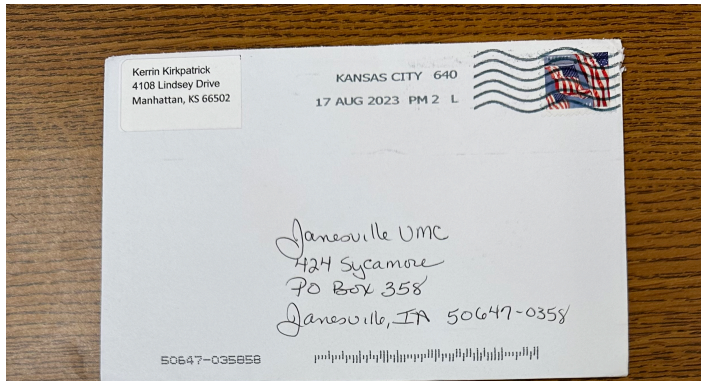 Kerrin Kirkpatrick
4108 Lindsey Drive
Manhattan, KS 66502
KANSAS CITY 640
17 AUG 2023 PM 2 L
Janesville UMC
424 Sycamore
PO Box 358
Janesville, IA 50647-0358
50647-035858